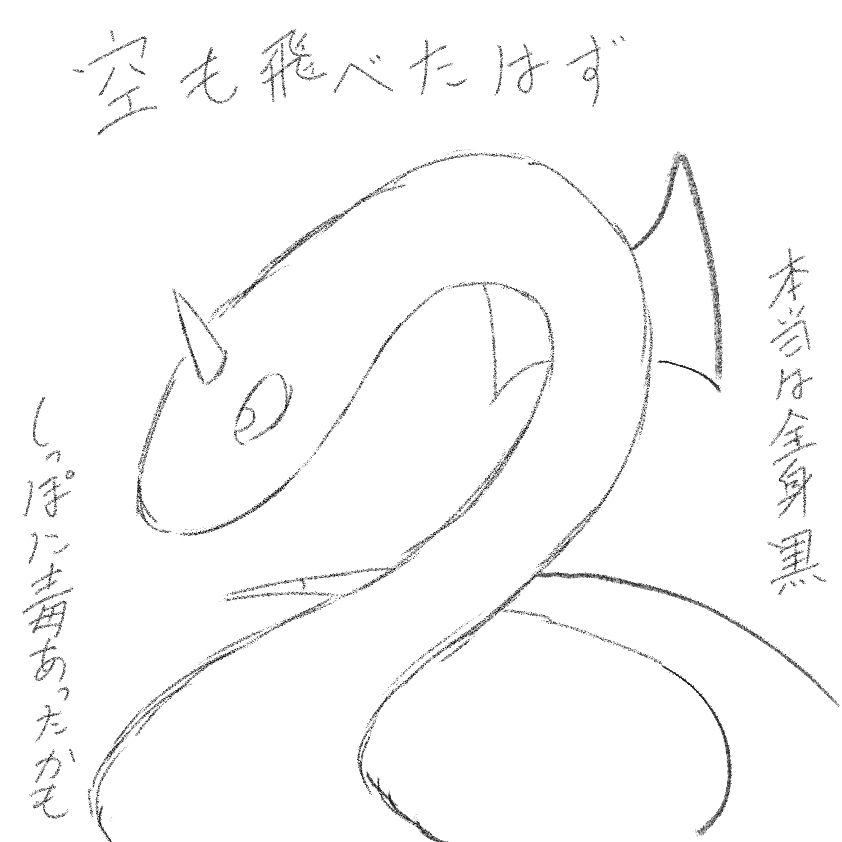 空も飛べたはず
本当は全身黒
しっぽに毒あったかも